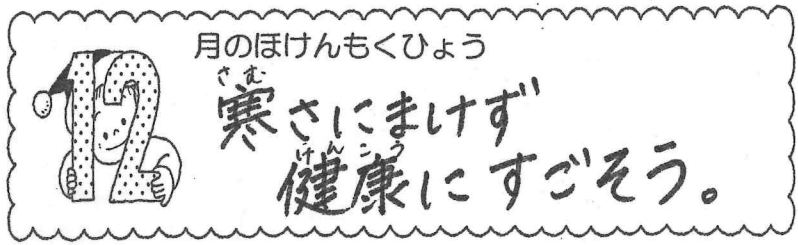 12月のほけんもくひょう
さむ
寒さにまけず
けんこう
健康にすごそう。